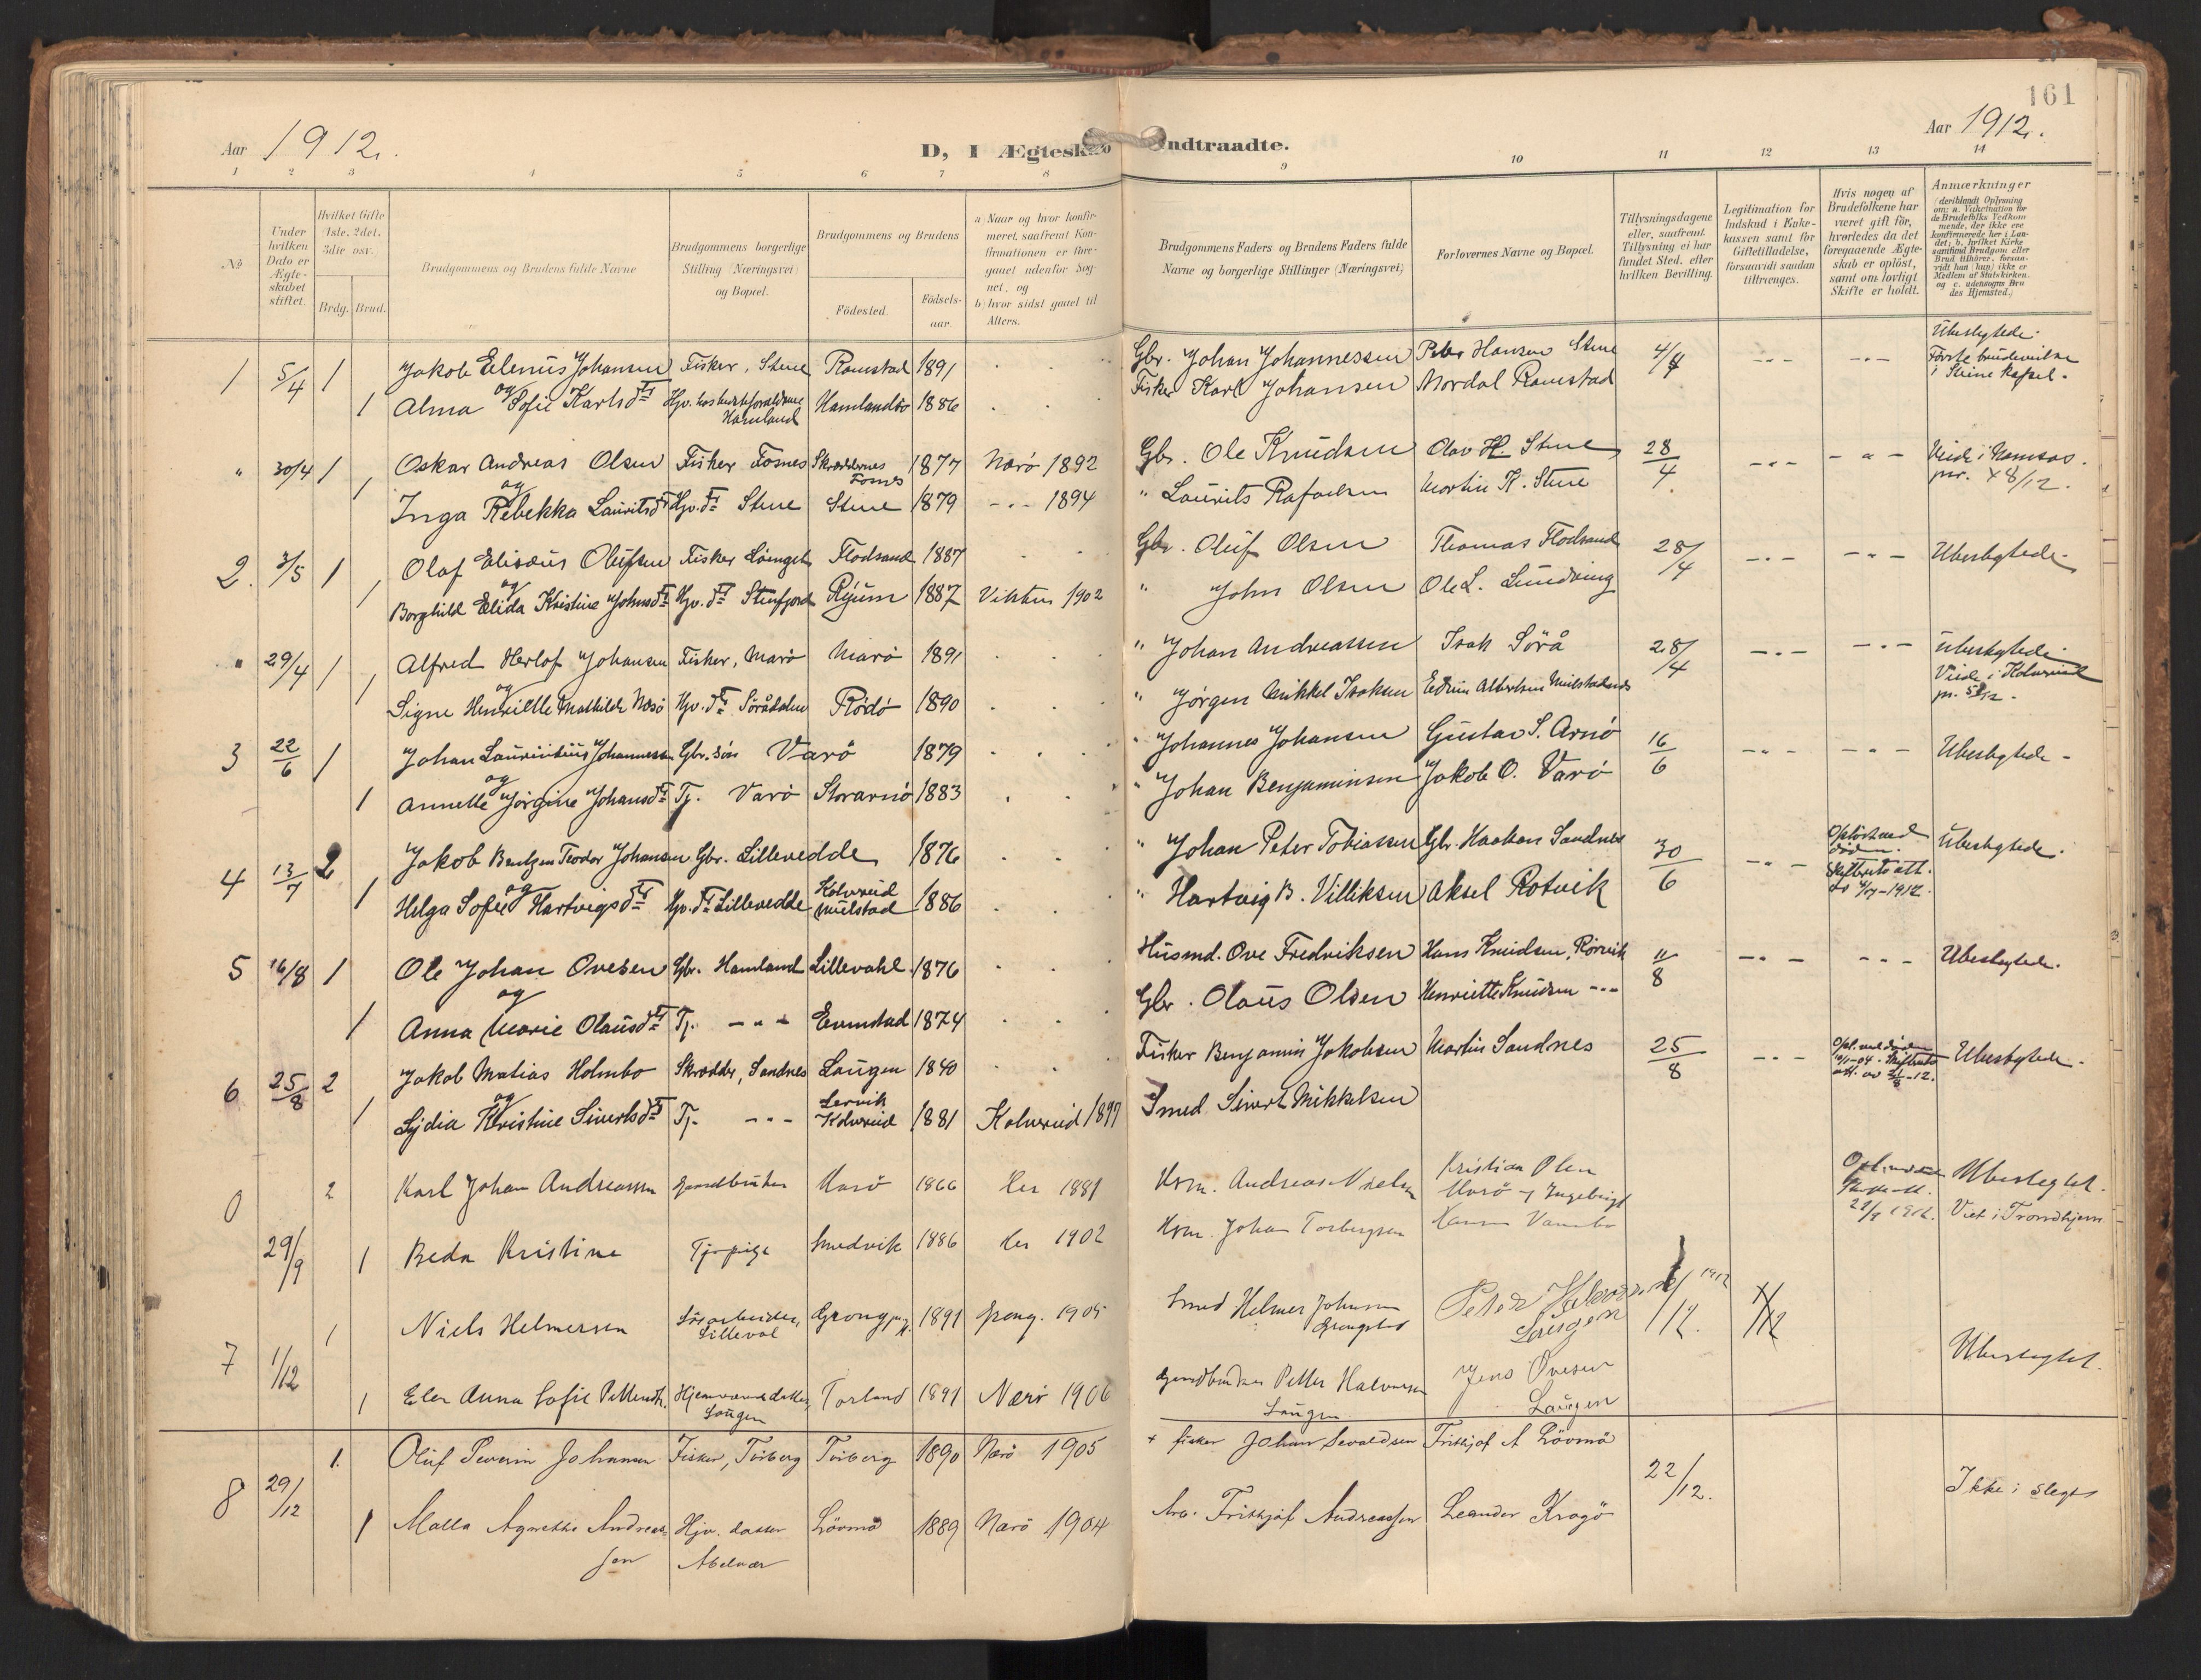 161
Aar 1912.
D, I Ægteskab Indtraadte.
Aar 1912.
1 2 3 4 5 6 7 8 9 10 11 12 13 14
No
Under hvilken Dato er Ægteskabet stiftet.
Hvilket Gifte (1ste, 2det, 3die osv.
Brdg. Brud.
Brudgommens og Brudens fulde Navne
Brudgommens borgerlige Stilling (Næringsvei) og Bopæl.
Brudgommens og Brudens
Födested.
Födsels-aar.
a) Naar og hvor konfirmeret, saafremt Konfirmationen er foregaaet udenfor Sognet, og
b) hvor sidst gaaet til Alters.
Brudgommens Faders og Brudens Faders fulde Navne og borgerlige Stillinger (Næringsvei)
Forlovernes Navne og Bopæl.
Tillysningsdagene eller, saafremt Tillysning ei har fundet Sted, efter hvilken Bevilling.
Legitimation for Indskud i Enkekassen samt for Giftetilladelse, forsaavidt saadan tiltrænges.
Hvis nogen af Brudefolkene har været gift för, hvorledes da det foregaaende Ægteskab er oplöst, samt om lovligt Skifte er holdt.
Anmærkninger
(deriblandt Oplysning om: a. Vaksination for de Brudefolks Vedkommende, der ikke ere konfirmerede her i Landet; b. hvilket Kirkesamfund Brudgom eller Brud tilhörer, forsaavidt han (hun) ikke er Medlem af Statskirken, og c. udensogns Brudes Hjemsted.)
1 5/4 1 Jakob Elenius Johansen Fisker, Stene Ramstad 1891 Gbr. Johan Johannessen Peter Hansen Stene 4/4 Ubeslegtede. Förste brudevielse i Steine kapel.
og
1 Alma Sofie Karlsdtr Hjv. hos Hamland Hamlandbö 1886 Fisker Karl Johansen Nordal Ramstad
" 30/4 1 Oskar Andreas Olsen Fisker Fosnes Skræddernes Fosnes 1877 Nærö 1892 Gbr. Ole Knudsen Olav H. Stene 28/4 Viede i Namsos.
og
1 Inga Rebekka Lauritsdtr Hjv. dtr Stene Stene 1879 -"- 1894 " Laurits Rafaelsen Martin K. Stene
2. 3/5 1 Olaf Elisæus Olufsen Fisker Flodsand 1887 Gbr. Oluf Olsen Thomas Flodsand 28/4 Ubeslegtede.
og
1 Borghild Elida Kristine Johnsdtr Hjv. dtr Stenfjord Ryum 1887 Vikten 1902 " John Olsen Ole L.
" 29/4 1 Alfred Herlof Johansen Fisker, Marö Marö 1891 " Johan Andreassen Isak Sörå 28/4 Ubeslegtede. Viede i Kolvereid
og
1 Signe Henriette Mathilde Næsö Hjv. dtr Söråddalen Rödö 1890 " Jörgen Mikkel Isaksen Edvin Albertsen
3 22/6 1 Johan Laurintius Johannessen Gbr. sön Varö 1879 " Johannes Johansen Gustav S. Arnö 16/6 Ubeslegtede.
og
1 Annette Jörgine Johansdtr Tj. Varö Storarnö 1883 " Johan Benjaminsen Jakob O. Varö
4 13/7 2 Jakob Bentzen Teodor Johansen Gbr. Lillevedde 1876 " Johan Peter Tobiassen Gbr. Haakon Sandnes 30/6 Oplöst ved döden. Skifteretsatt. Ubeslegtede.
og
1 Helga Sofie Hartvigsdtr Hjv. dtr Lillevedde Kolvereid Mulstad 1886 " Hartvig B. Villiksen Aksel Rotvik
5 16/8 1 Ole Johan Ovesen Gbr. Hamland Lillevahl 1876 Husmd. Ove Fredriksen Hans Knudsen, Rörvik 11/8 Ubeslegtede.
og
1 Anna Marie Olausdtr Tj. -"- Evenstad 1874 Gbr. Olaus Olsen Henriette Knudsen -"-
6 25/8 2 Jakob Matias Holmbo Skrædder, Sandnes Laugen 1840 Fisker Benjamin Jakobsen Martin Sandnes 25/8 Ubeslegtede.
og
1 Lydia Kristine Sivertsdtr Tj. -"- Lervik Kolvereid 1881 Kolvereid 1897 Smed Sivert Mikkelsen
0 2 Karl Johan Andreassen Gaardbruker Marö 1866 Her 1881 Andreas Nielsen Kristian Olsen Ubeslegtet. Viet i Trondhjem
29/9 1 Beda Kristine Tj. pige Smedvik 1886 Her 1902 Johan Torbergsen
1 Niels Helmersen Lilleval Grong 1891 Grong. 1905 Smed Helmer Johansen Laugen
7 1/12 Ubeslegtet.
1 Elen Anna Sofie Pettersdtr. Hjemmeværende datter, Laugen Torland 1891 Nærö 1906 Gaardbruker Petter Halvorsen Laugen Jens Ovesen Laugen
1. Oluf Severin Johansen Fisker, Torberg Torberg 1890 Nærö 1905 Fisker Johan Sevaldsen Fritkjof A Lövmö
8 29/12 22/12. Ikke i slegt
1 Malla Agnethe Andreassen Hjv. datter Abelvær Lövmö 1889 Nærö 1904 Arb. Fritkjof Andreassen Leander Kragö